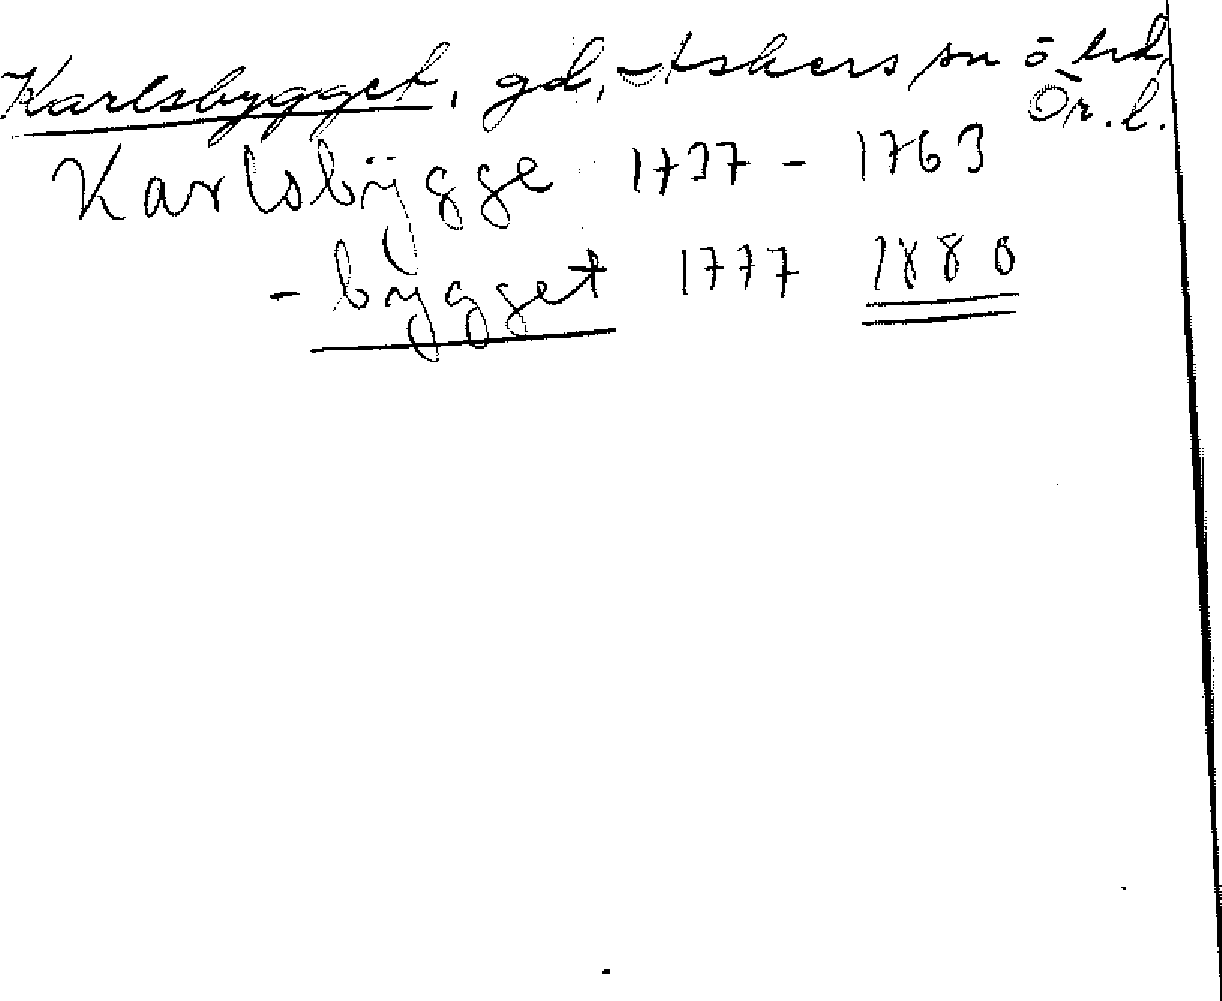 Karlsbygget, gd, Askers sn ö hd,
Ör. l.
Karlsbÿgge 1737 - 1763
- bÿgget 1777 1880